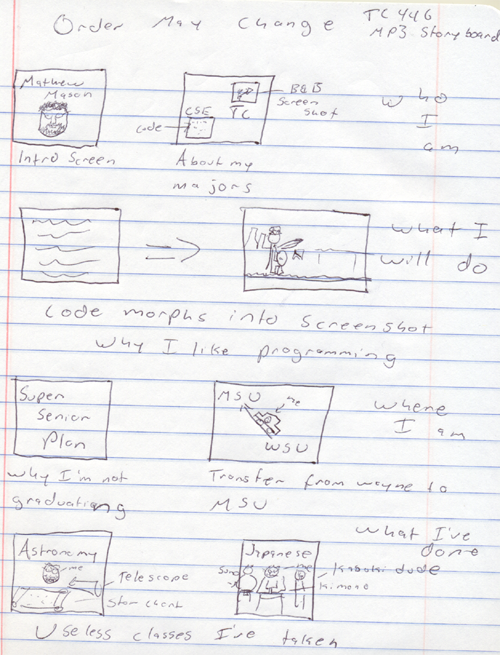 Order May Change
TC 446
MP3 Storyboard
Mathew
Mason
Intro Screen
CSE
TC
code
Screen
Shot
About my
majors
Who
I
am
What I
will do
Code morphs into screenshot
Why I like programming
Super
Senior
Plan
Why I'm not
MSU
me
WSU
Transfer from wayne to
MSU
Where
I am
What I've
done
Astronomy
me
Telescope
Star Chart
Japanese
me
Kabuki dude
Kimono
Useless classes I've taken